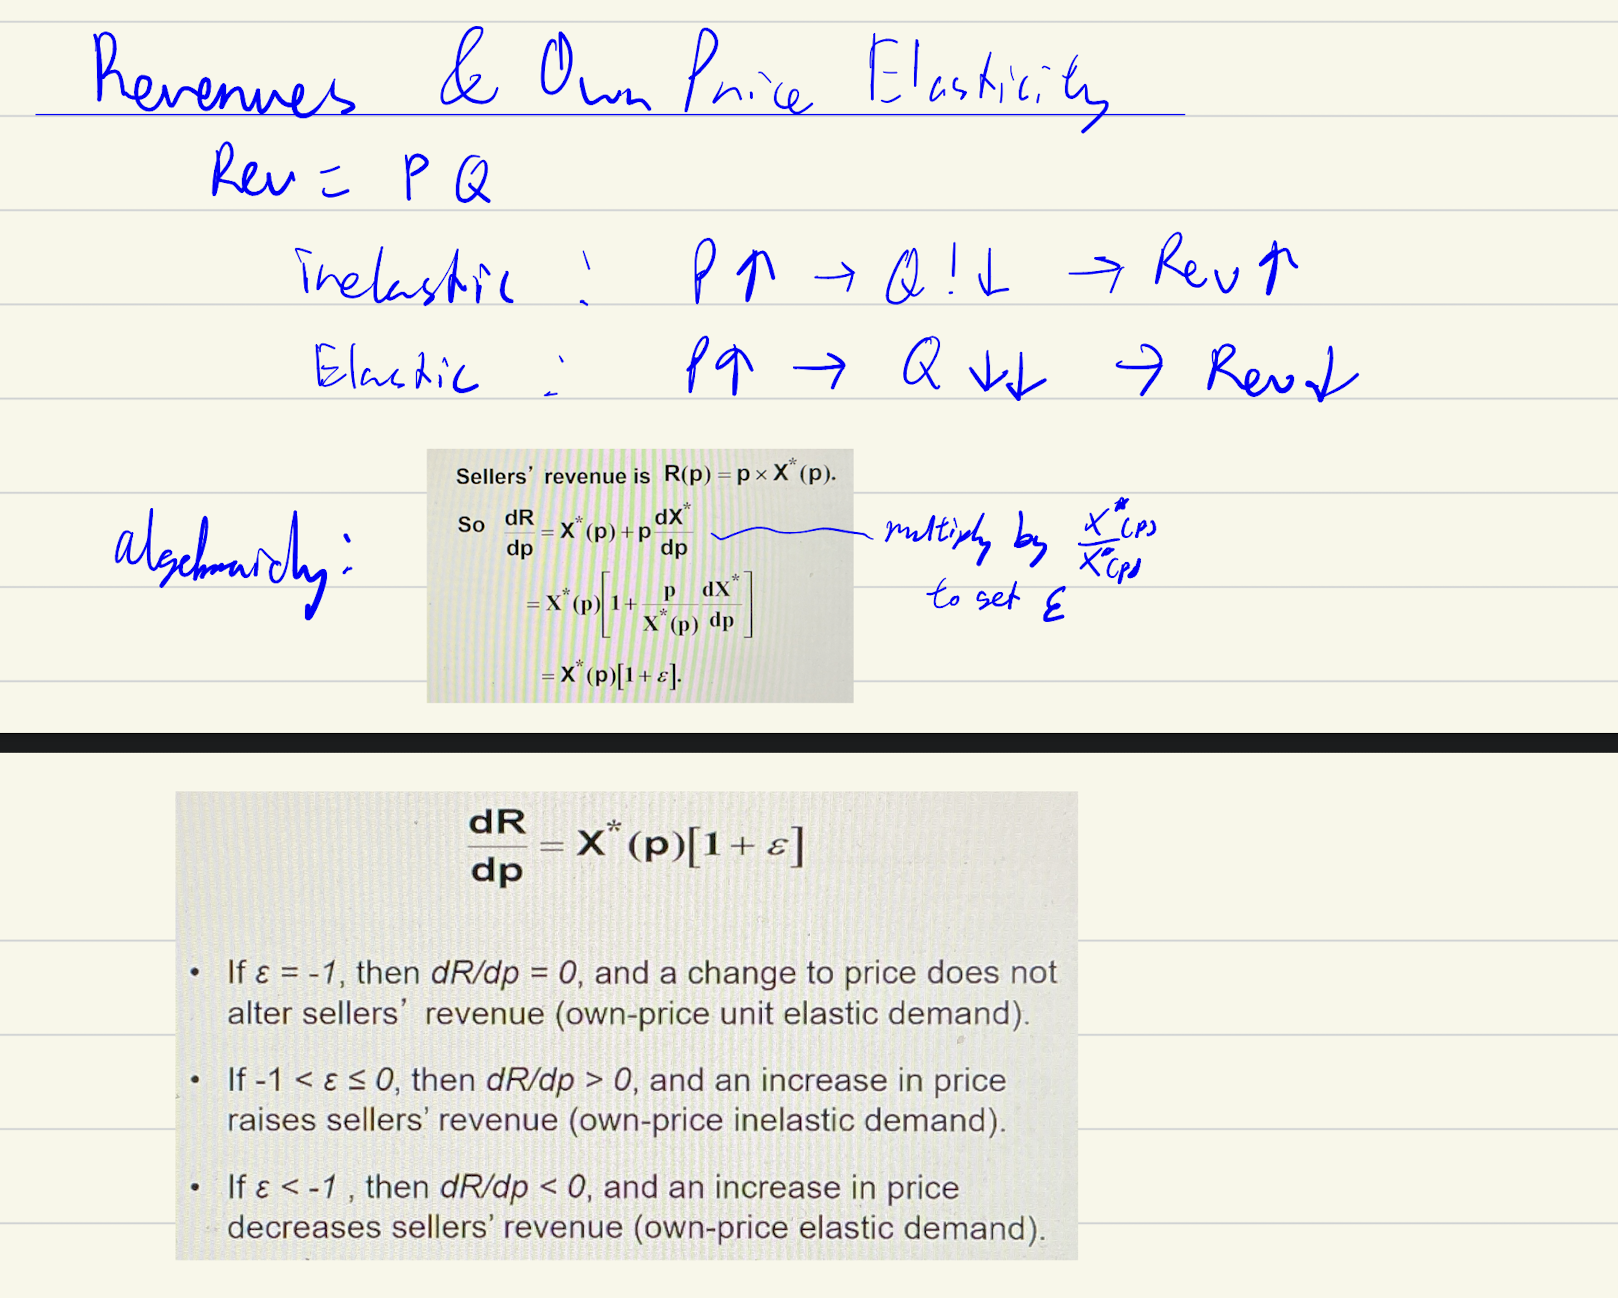 Revenues & Own Price Elasticity
Rev = P Q
inelastic : P ↑ → Q ! ↓ → Rev ↑
Elastic : P↑ → Q ↓↓ → Rev ↓
Sellers' revenue is R(p) = p × X*(p).
So dR/dp = X*(p) + p dX*/dp
multiply by X*(p)/X*(p)
to get ε
= X*(p)[1 + p/X*(p) dX*/dp]
= X*(p)[1 + ε].
dR/dp = X*(p)[1 + ε]
• If ε = -1, then dR/dp = 0, and a change to price does not
alter sellers' revenue (own-price unit elastic demand).
• If -1 < ε ≤ 0, then dR/dp > 0, and an increase in price
raises sellers' revenue (own-price inelastic demand).
• If ε < -1 , then dR/dp < 0, and an increase in price
decreases sellers' revenue (own-price elastic demand).